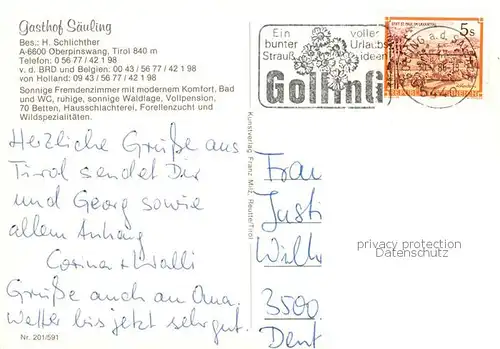 Gasthof Säuling
Bes.: H. Schlichther
A-6600 Oberpinswang, Tirol 840 m
Telefon: 0 56 77 / 42 1 98
v. d. BRD und Belgien: 00 43 / 56 77 / 42 1 98
von Holland: 09 43 / 56 77 / 42 1 98
Sonnige Fremdenzimmer mit modernem Komfort, Bad
und WC, ruhige, sonnige Waldlage, Vollpension,
70 Betten, Hausschlachterei, Forellenzucht und
Wildspezialitäten.
Herzliche Grüße aus
Tirol sendet Dir
und Georg sowie
allem Anhang
Corina + Walli
Grüße auch an Oma.
Wetter bis jetzt sehr gut.
Nr. 201/591
Kunstverlag Franz Milz, Reutte/Tirol
Ein voller
bunter Urlaubs
Strauß ideen
Golling
5 S
Frau
Justi
3500
privacy protection
Datenschutz